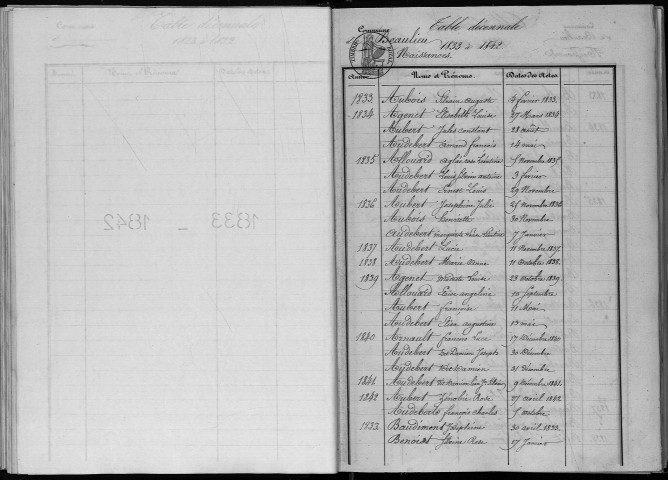 Commune
Table décennale
de Beaulieu
1833 à 1842
Naissances.
Années Noms et Prénoms. Dates des Actes.
1833 Aubois auguste février 1833
1834 Agenet Elisabeth Louise 27 Mars 1834
Aubert Jules Constant 28 août
Audebert Armand françois 14 mai
1835 Allouard Aglaé rose 5 Novembre 1835
Audebert Louis 3 février
Audebert Ernest Louis 29 Novembre
1836 Aubert Joséphine Julie 25 Novembre 1836
Aubois henriette 30 Novembre
Audebert 7 Janvier
1837 Audebert Lucie 11 Novembre 1837
1838 Audebert Marie Anne 11 Octobre 1838
1839 Agenet Modeste Louise 23 Octobre 1839
Allouard angelina 10 Septembre
Aubert françoise 11 Mai
Audebert augustine 13 mai
1840 Arnault francois Luce 17 Décembre 1840
Audebert Damien Joseph 30 Décembre
Audebert Damien 31 Décembre
1841 Audebert 9 Décembre 1841
1842 Aubert Zénobie Rose 27 avril 1842
Audebert françois Charles 5 octobre
1933 Baudimont Joséphine 30 avril 1833
Benoist Rose 27 Janvier
Table décennale
1833 à 1842
1833 - 1842